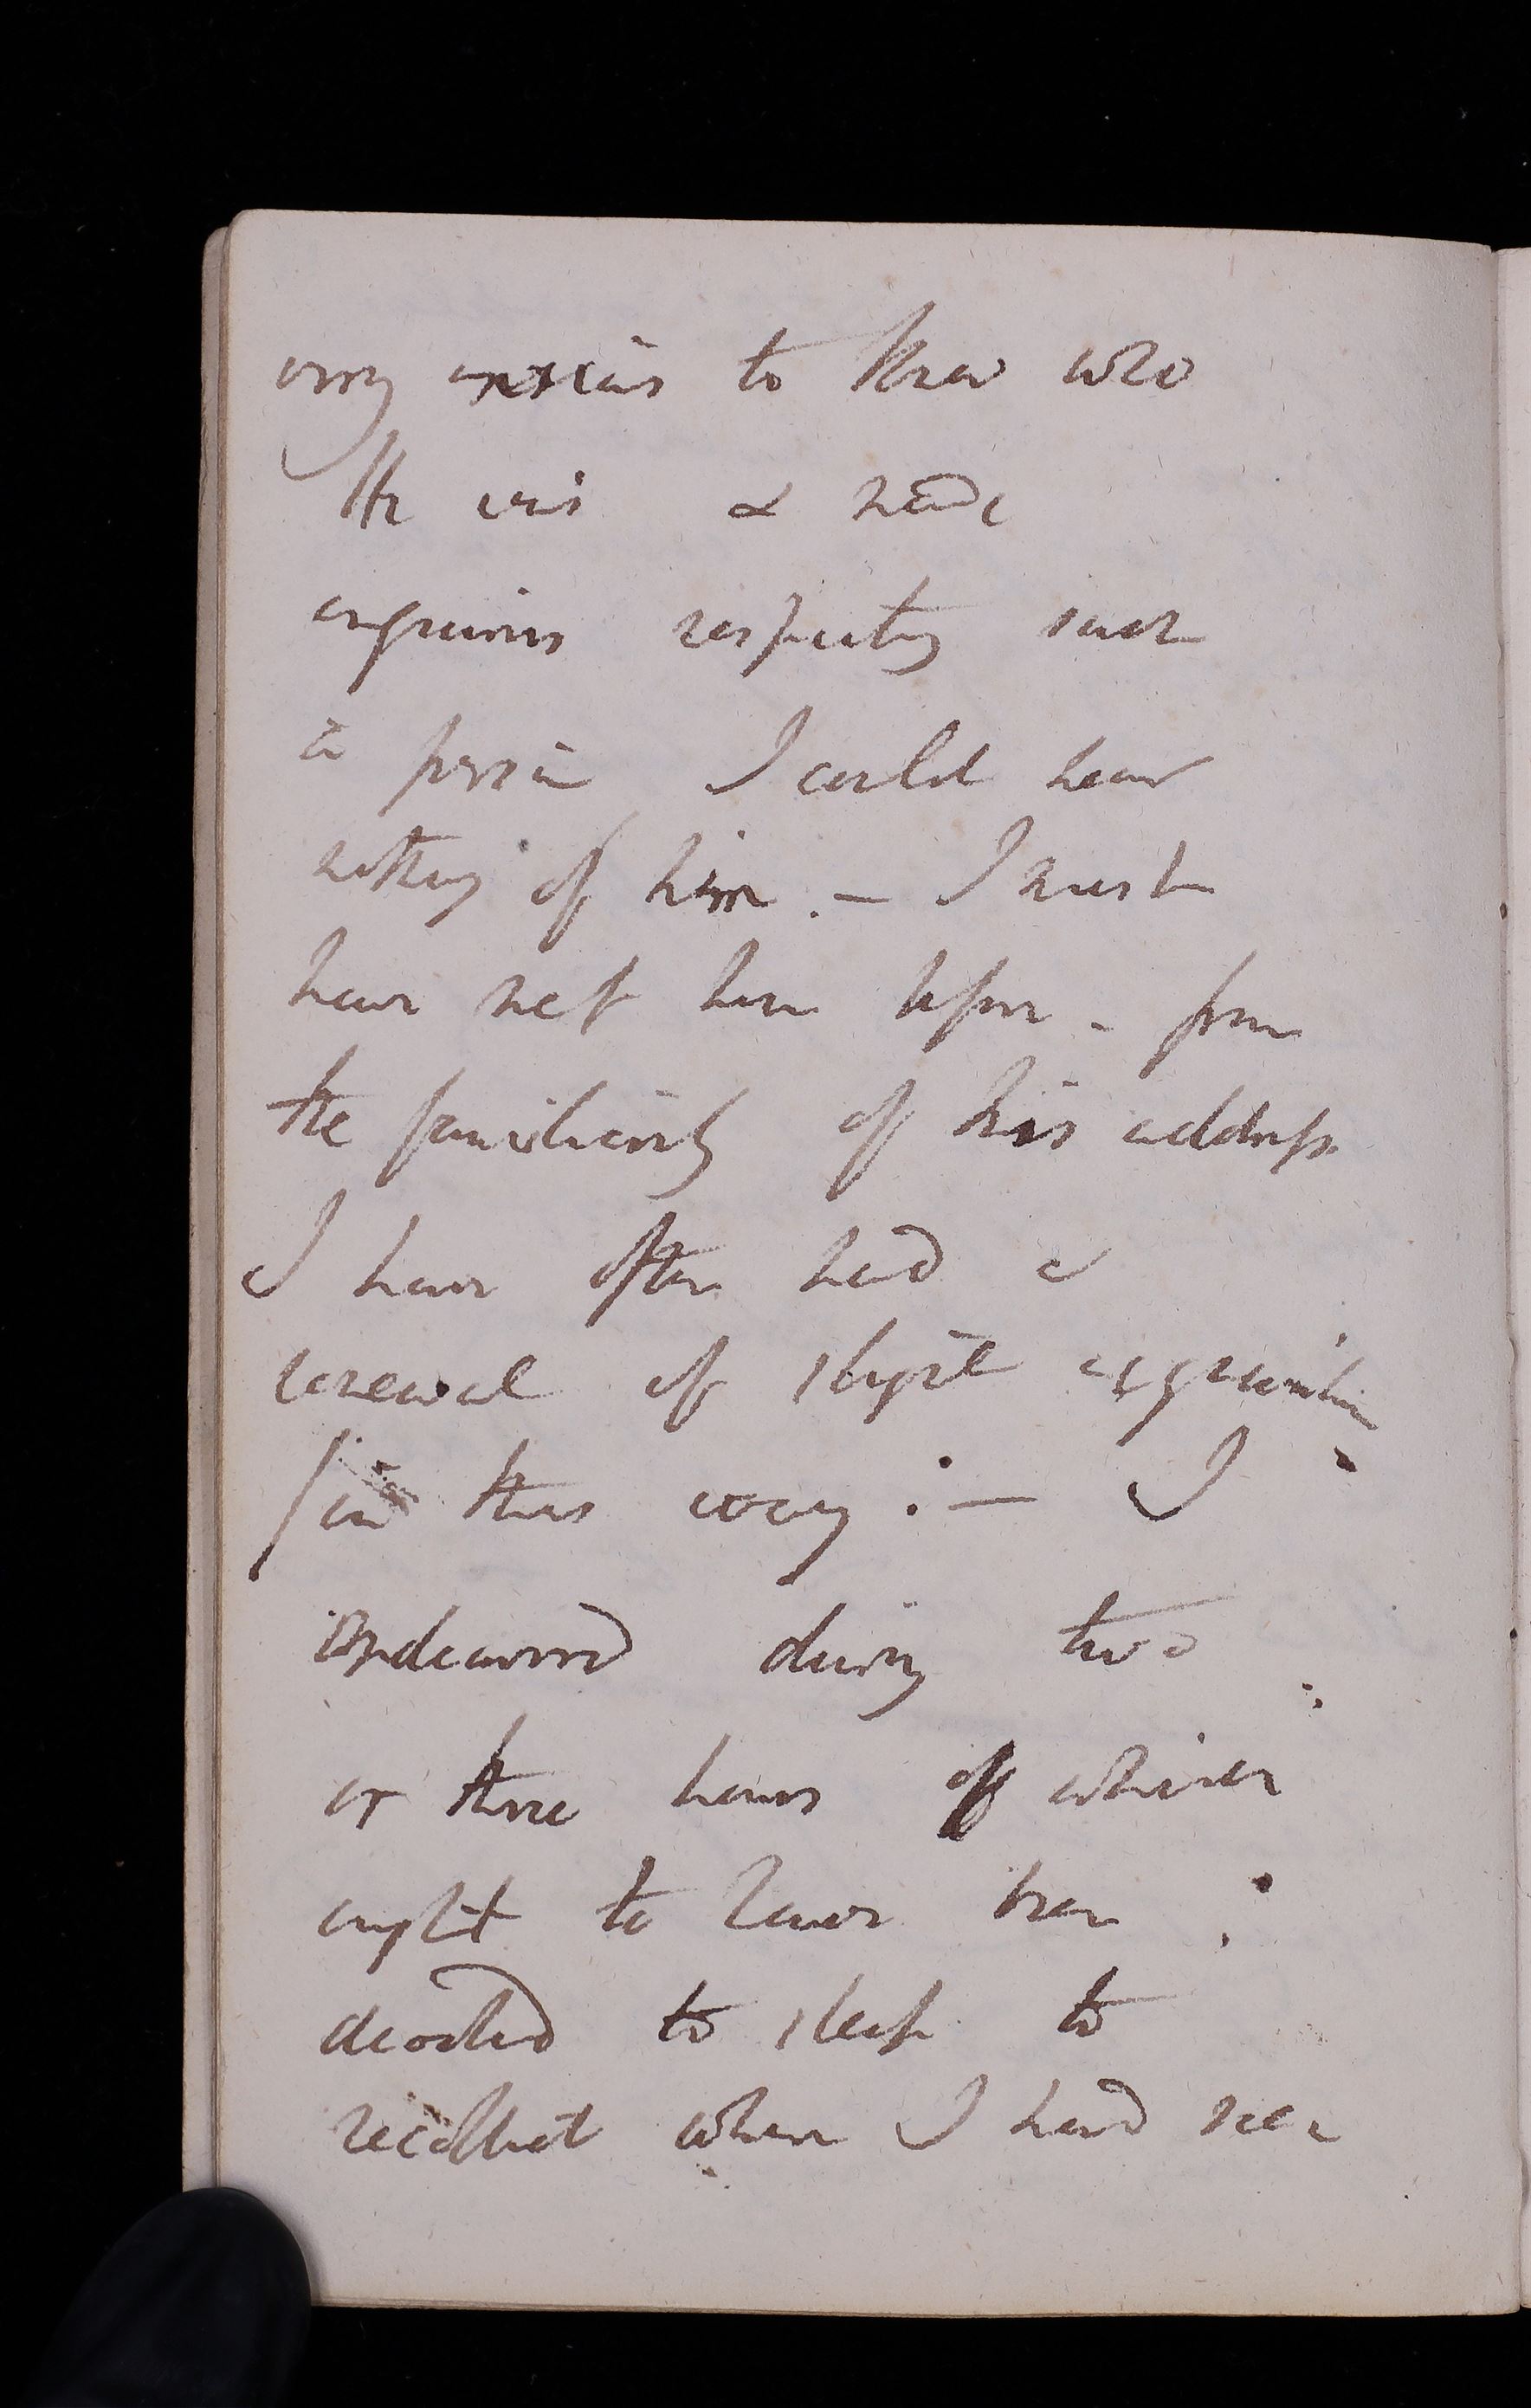 very anxious to know who
He was & made
enquiries respecting such
a person I could hear
nothing of him. — I must
have met him before - from
the familiarity of his address
I have often had a
renewal of slight acquaintance
in this way : — I
endeavoured during two
or three hours of which
ought to have been
devoted to sleep to
recollect when I had seen